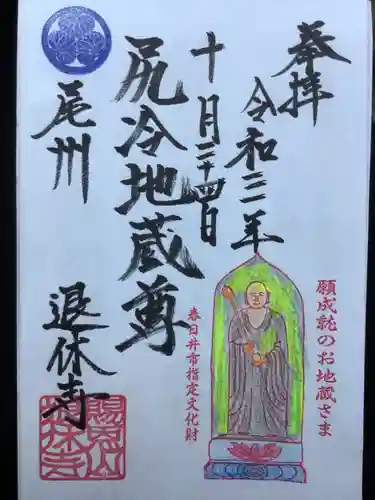 奉拝
令和三年
十月二十四日
尻冷地蔵尊
尾州
退休寺
願成就のお地蔵さま
春日井市指定文化財